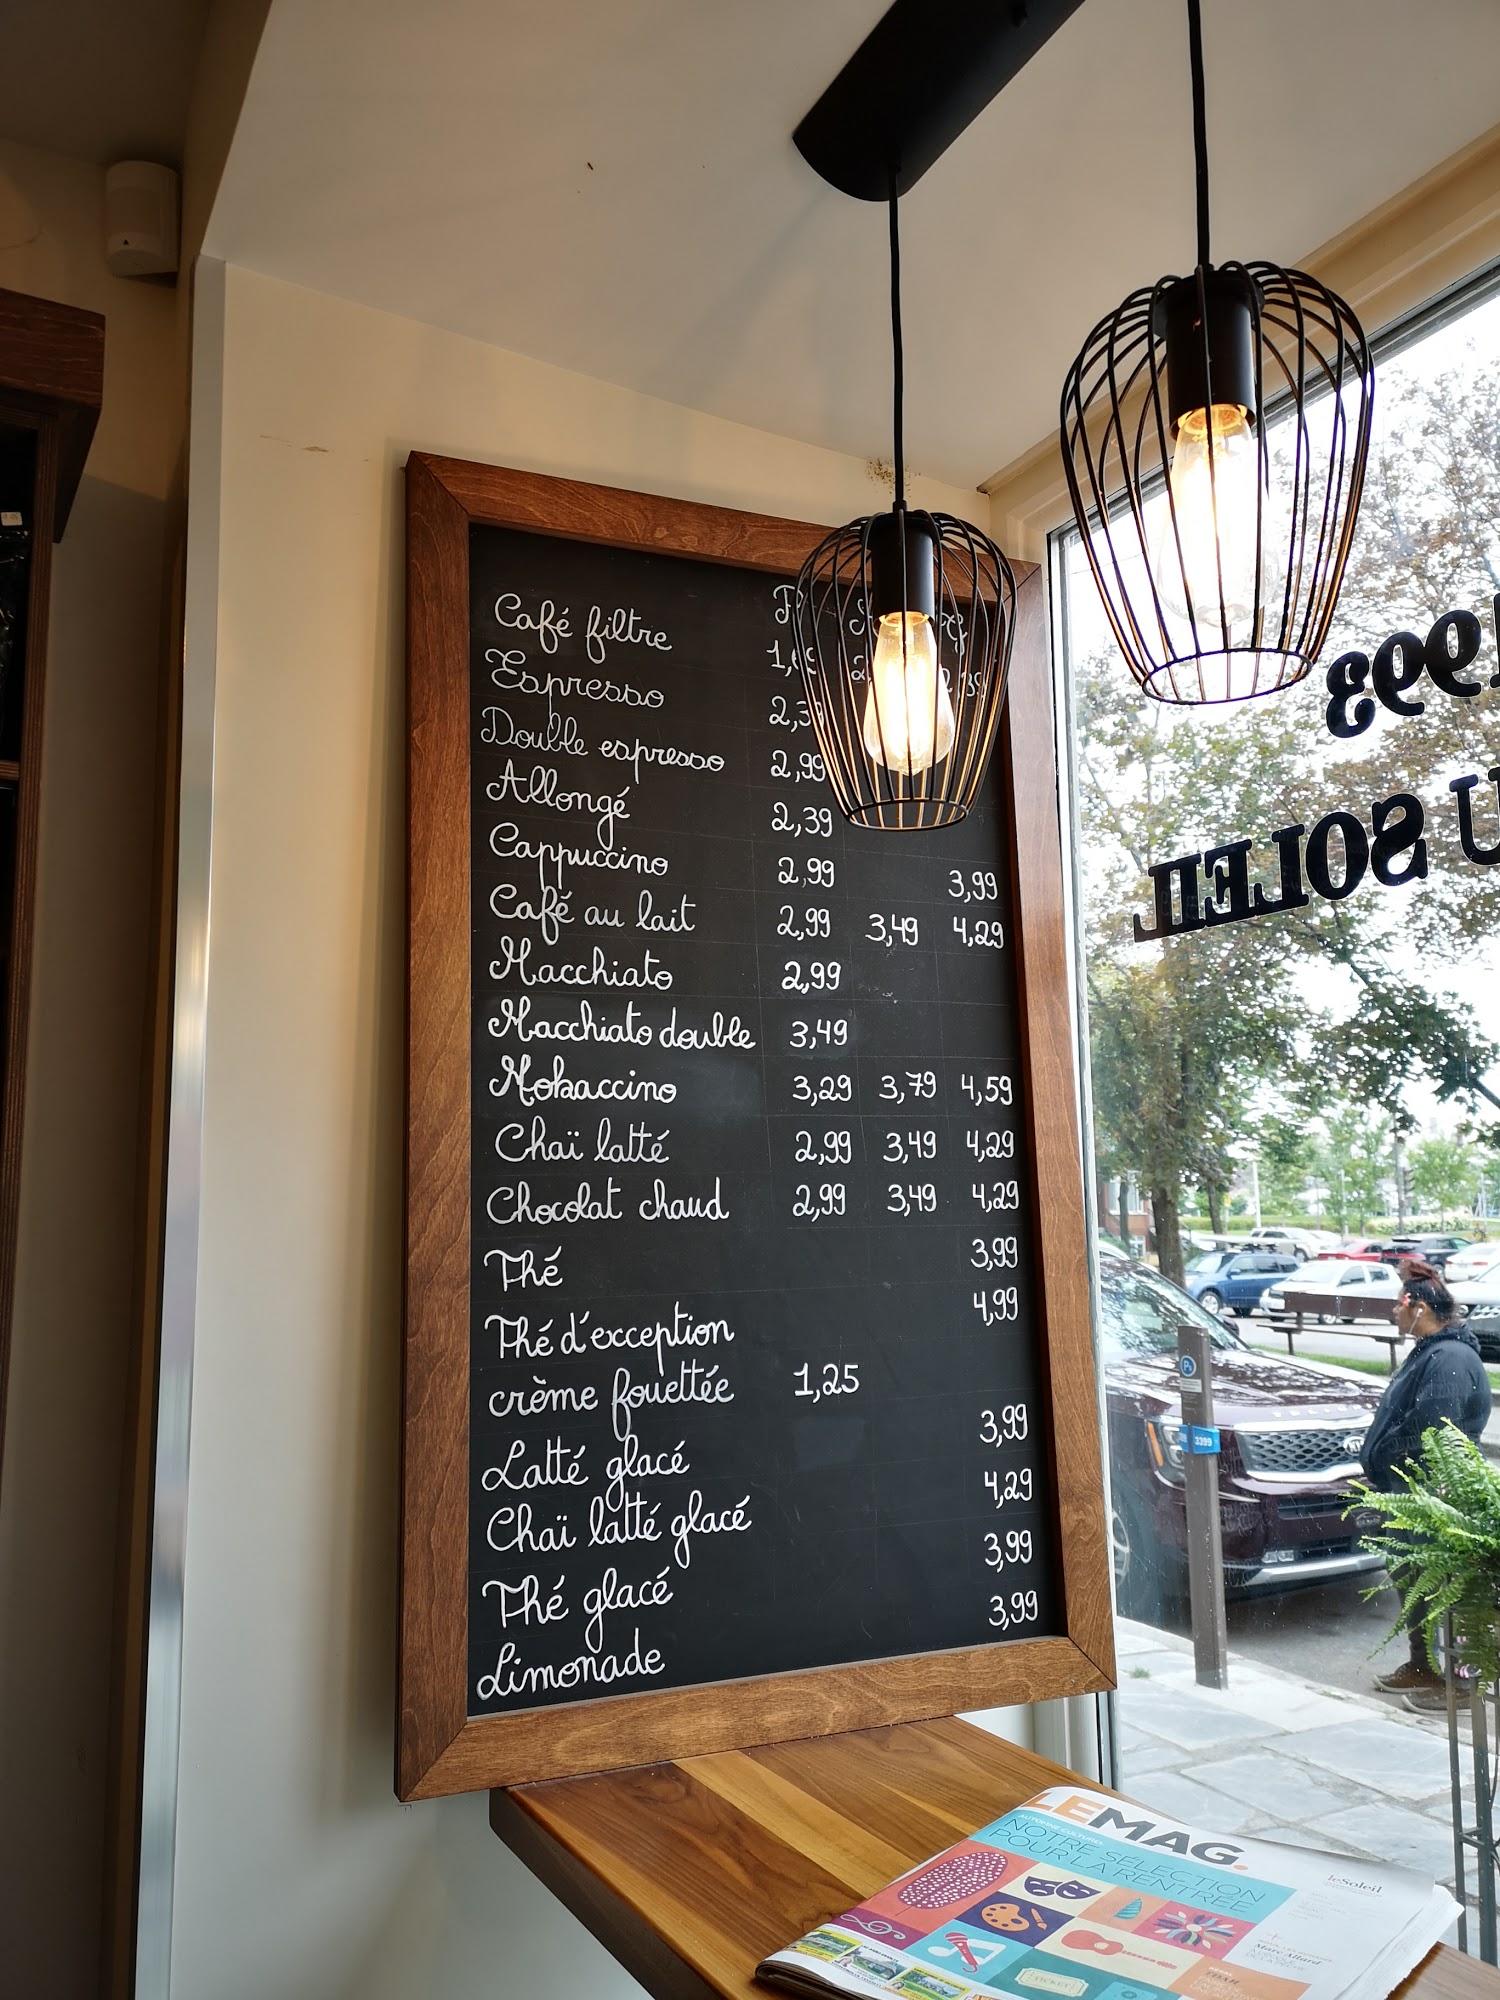 Café filtre
Espresso
Double espresso 2,99
Allongé 2,39
Cappuccino 2,99 3,99
Café au lait 2,99 3,49 4,29
Macchiato 2,99
Macchiato double 3,49
Mokaccino 3,29 3,79 4,59
Chaï latté 2,99 3,49 4,29
Chocolat chaud 2,99 3,49 4,29
Thé 3,99
Thé d'exception 4,99
crème fouettée 1,25
Latté glacé 3,99
Chaï latté glacé 4,29
Thé glacé 3,99
Limonade 3,99
SOLEIL
3399
LEMAG.
NOTRE SÉLECTION
POUR LA RENTRÉE
leSoleil
Marc Allard
TICKET